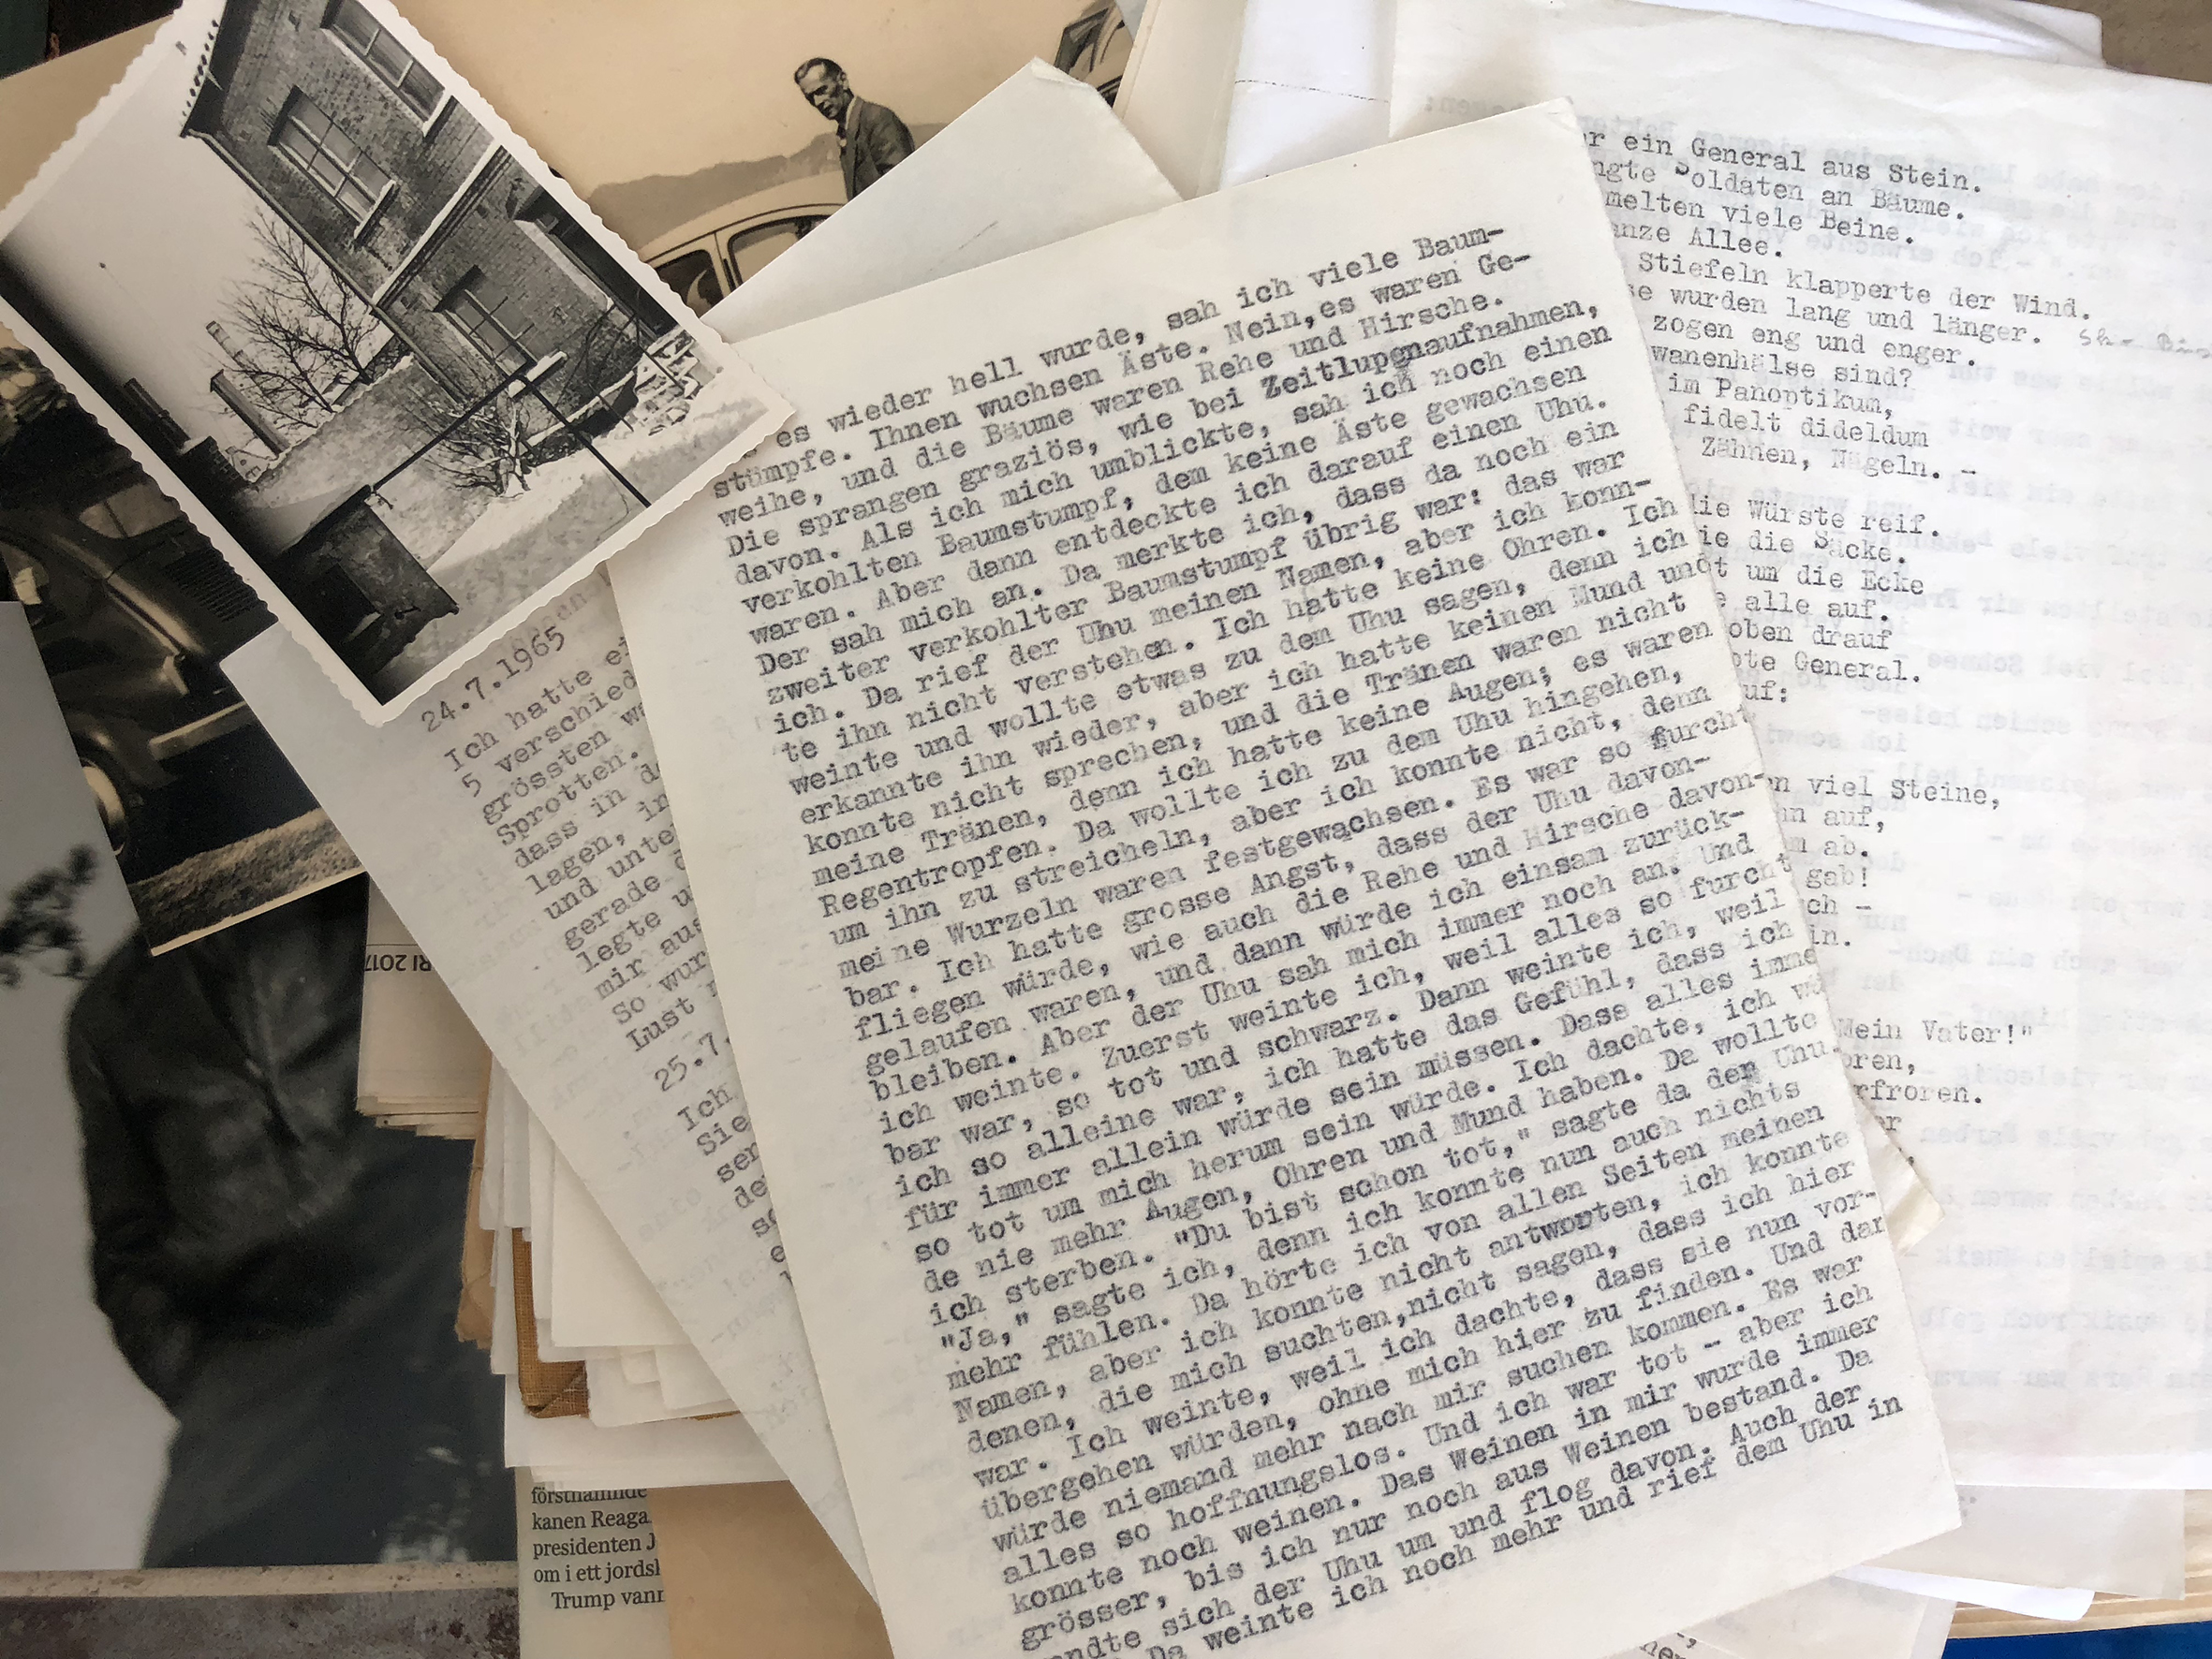 es wieder hell wurde, sah ich viele Baum-
stümpfe. Ihnen wuchsen Äste. Nein,es waren Ge-
weihe, und die Bäume waren Rehe und Hirsche.
Die sprangen graziös, wie bei Zeitlupenaufnahmen,
davon. Als ich mich umblickte, sah ich noch einen
verkohlten Baumstumpf, dem keine Äste gewachsen
waren. Aber dann entdeckte ich darauf einen Uhu.
Der sah mich an. Da merkte ich, dass da noch ein
zweiter verkohlter Baumstumpf übrig war: das war
ich. Da rief der Uhu meinen Namen, aber ich konn-
te ihn nicht verstehen. Ich hatte keine Ohren. Ich
weinte und wollte etwas zu dem Uhu sagen, denn ich
erkannte ihn wieder, aber ich hatte keinen Mund und
konnte nicht sprechen, und die Tränen waren nicht
meine Tränen, denn ich hatte keine Augen; es waren
Regentropfen. Da wollte ich zu dem Uhu hingehen,
um ihn zu streicheln, aber ich konnte nicht, denn
meine Wurzeln waren festgewachsen. Es war so furcht
bar. Ich hatte grosse Angst, dass der Uhu davon-
fliegen würde, wie auch die Rehe und Hirsche davon-
gelaufen waren, und dann würde ich einsam zurück-
bleiben. Aber der Uhu sah mich immer noch an. Und
ich weinte. Zuerst weinte ich, weil alles so furcht
bar war, so tot und schwarz. Dann weinte ich, weil
ich so alleine war, ich hatte das Gefühl, dass ich
für immer allein würde sein müssen. Dass alles imme
so tot um mich herum sein würde. Ich dachte, ich wü
de nie mehr Augen, Ohren und Mund haben. Da wollte
ich sterben. "Du bist schon tot," sagte da der Uhu.
"Ja," sagte ich, denn ich konnte nun auch nichts
mehr fühlen. Da hörte ich von allen Seiten meinen
Namen, aber ich konnte nicht antworten, ich konnte
denen, die mich suchten,nicht sagen, dass ich hier
war. Ich weinte, weil ich dachte, dass sie nun vor-
übergehen würden, ohne mich hier zu finden. Und dan
würde niemand mehr nach mir suchen kommen. Es war
alles so hoffnungslos. Und ich war tot - aber ich
konnte noch weinen. Das Weinen in mir wurde immer
grösser, bis ich nur noch aus Weinen bestand. Da
andte sich der Uhu um und flog davon. Auch der
Da weinte ich noch mehr und rief dem Uhu in
24.7.1965
Ich hatte ei
5 verschied
grössten w
Sprotten.
dass in d
lagen, in
und unte
gerade d
legte u
mir aus
So wur
Lust
25.7.
Ich
Sie
ser
de
r ein General aus Stein.
ngte Soldaten an Bäume.
melten viele Beine.
anze Allee.
Stiefeln klapperte der Wind.
se wurden lang und länger.
zogen eng und enger.
wanenhälse sind?
im Panoptikum,
fidelt dideldum
Zähnen, Nägeln. -
die Würste reif.
ie die Säcke.
t um die Ecke
e alle auf.
oben drauf
ote General.
uf:
n viel Steine,
m auf,
m ab.
gab!
ch -
in.
Mein Vater!"
oren,
rfroren.
er
RI 2017
förstnämnde
kanen Reaga
presidenten J
om i ett jordsk
Trump vann